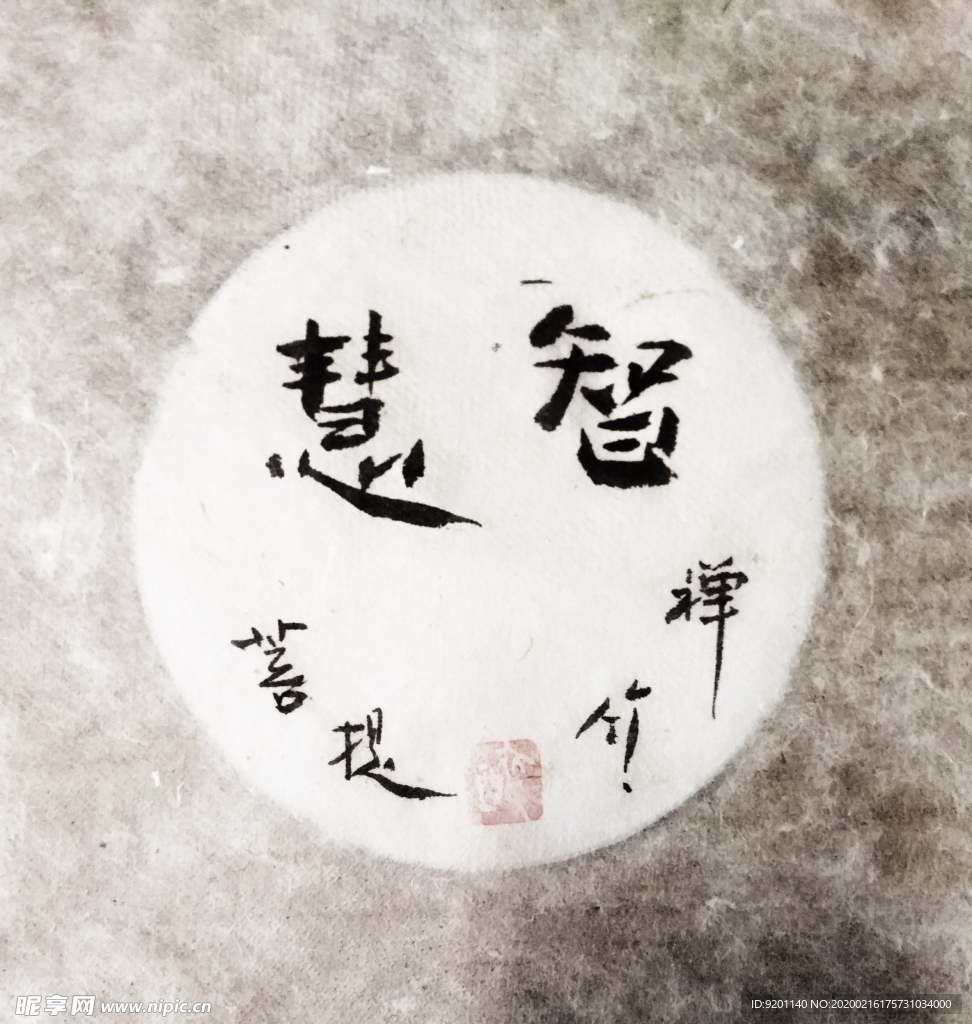 智慧
禅
菩提
昵享网 www.nipic.cn
ID:9201140 NO:20200216175731034000